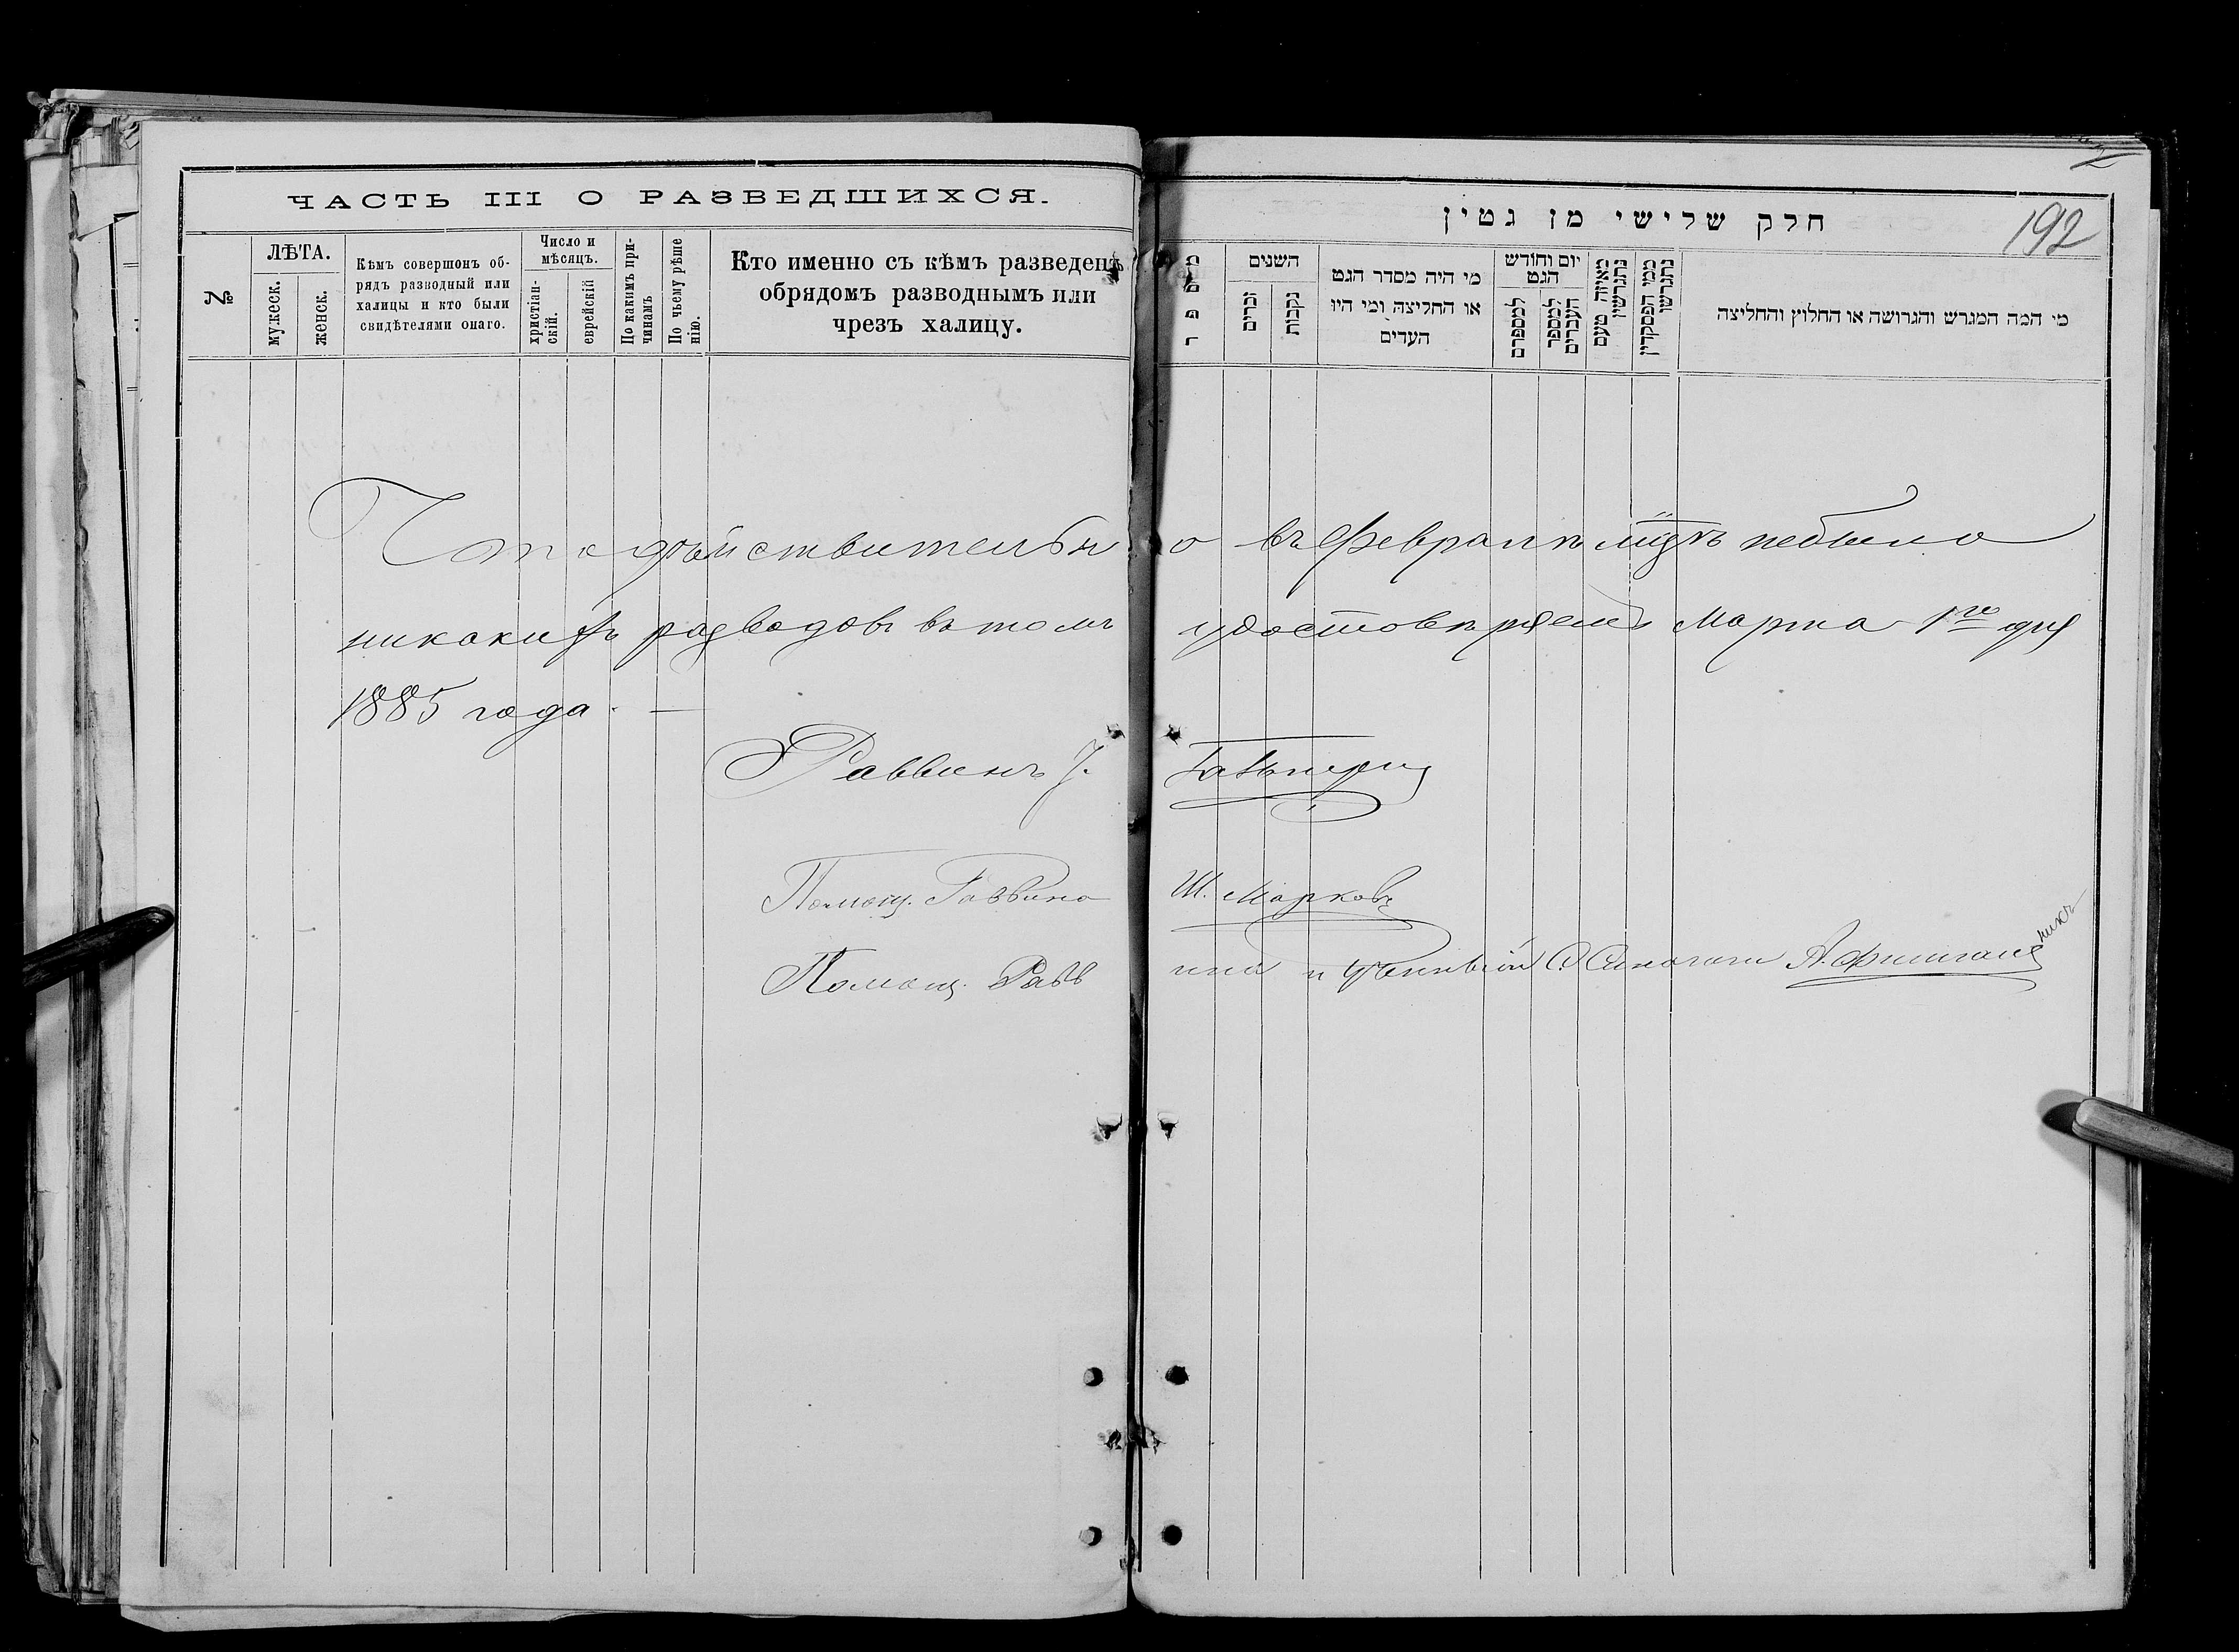 ЧАСТЬ III О РАЗВЕДШИХСЯ.
№
ЛѢТА.
мужеск.
женск.
Кѣмъ совершонъ об-
рядъ разводный или
халицы и кто были
свидѣтелями онаго.
Число и
мѣсяцъ.
христіан-
скій.
еврейскій
По какимъ при-
чинамъ
По чьему рѣше
нію.
Кто именно съ кѣмъ разведенъ
обрядомъ разводнымъ или
чрезъ халицу.
חלק שלישי מן גטין
192
מספר
השנים
זכרים
נקבות
מי היה מסדר הגט
או החליצה ומי היו
העדים
יום וחודש
הגט
למספרם
למספר
העברים
מאיזה טעם
נתגרשין
ממי הפסקדין
נתגרשו
מי המה המגרש והגרושה או החלוץ והחליצה
Что дѣйствительно въ Февралѣ мцѣ небыло
никакихъ разводовъ въ томъ удостовѣряемъ Марта 1го дня
1885 года. —
Раввинъ
Помощ. Раввина Ш. Марковъ
Помощ. Раввина и Ученый С. Синагоги А.